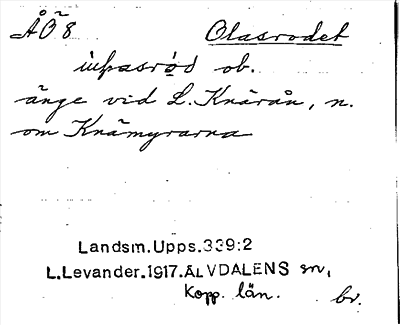 ÅÖ 8 Olasrodet
ob.
änge vid L. Knärån, n.
om Knämyrarna
Landsm.Upps.339:2
L.Levander.1917.ÄLVDALENS sn,
Kopp. län. br.